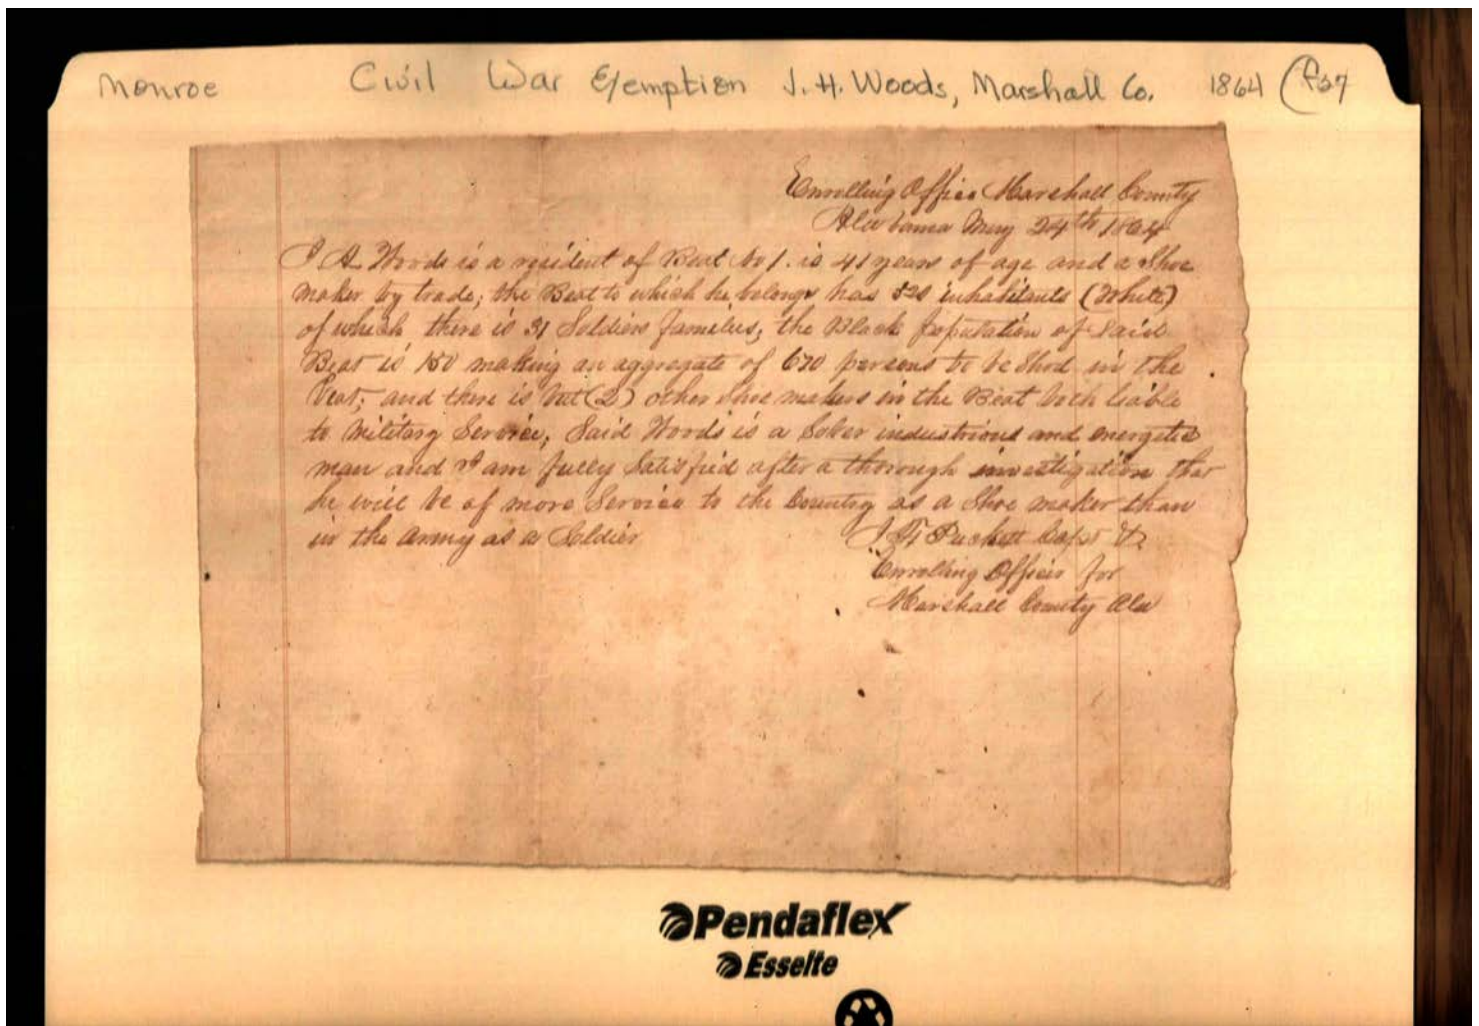 Monroe Civil War Exemption J. H. Woods, Marshall Co. 1864 (f27
Enrolling Office Marshall County
Alabama May 24th 1864
J. H. Woods is a resident of Beat No 1. is 41 years of age and a Shoe
maker by trade; the Beat to which he belongs has 520 inhabitants (White)
of which there is 31 Soldiers families, the Black population of Said
Beat is 150 making an aggregate of 670 persons to be Shod in the
Beat; and there is but (2) other shoe makers in the Beat both liable
to Military Service, Said Woods is a Sober industrious and energetic
man and I am fully Satisfied after a thorough investigation that
he will be of more Service to the Country as a Shoe maker than
in the Army as a Soldier
Puckett Capt &
Enrolling Officer for
Marshall County Ala
Pendaflex
Esselte